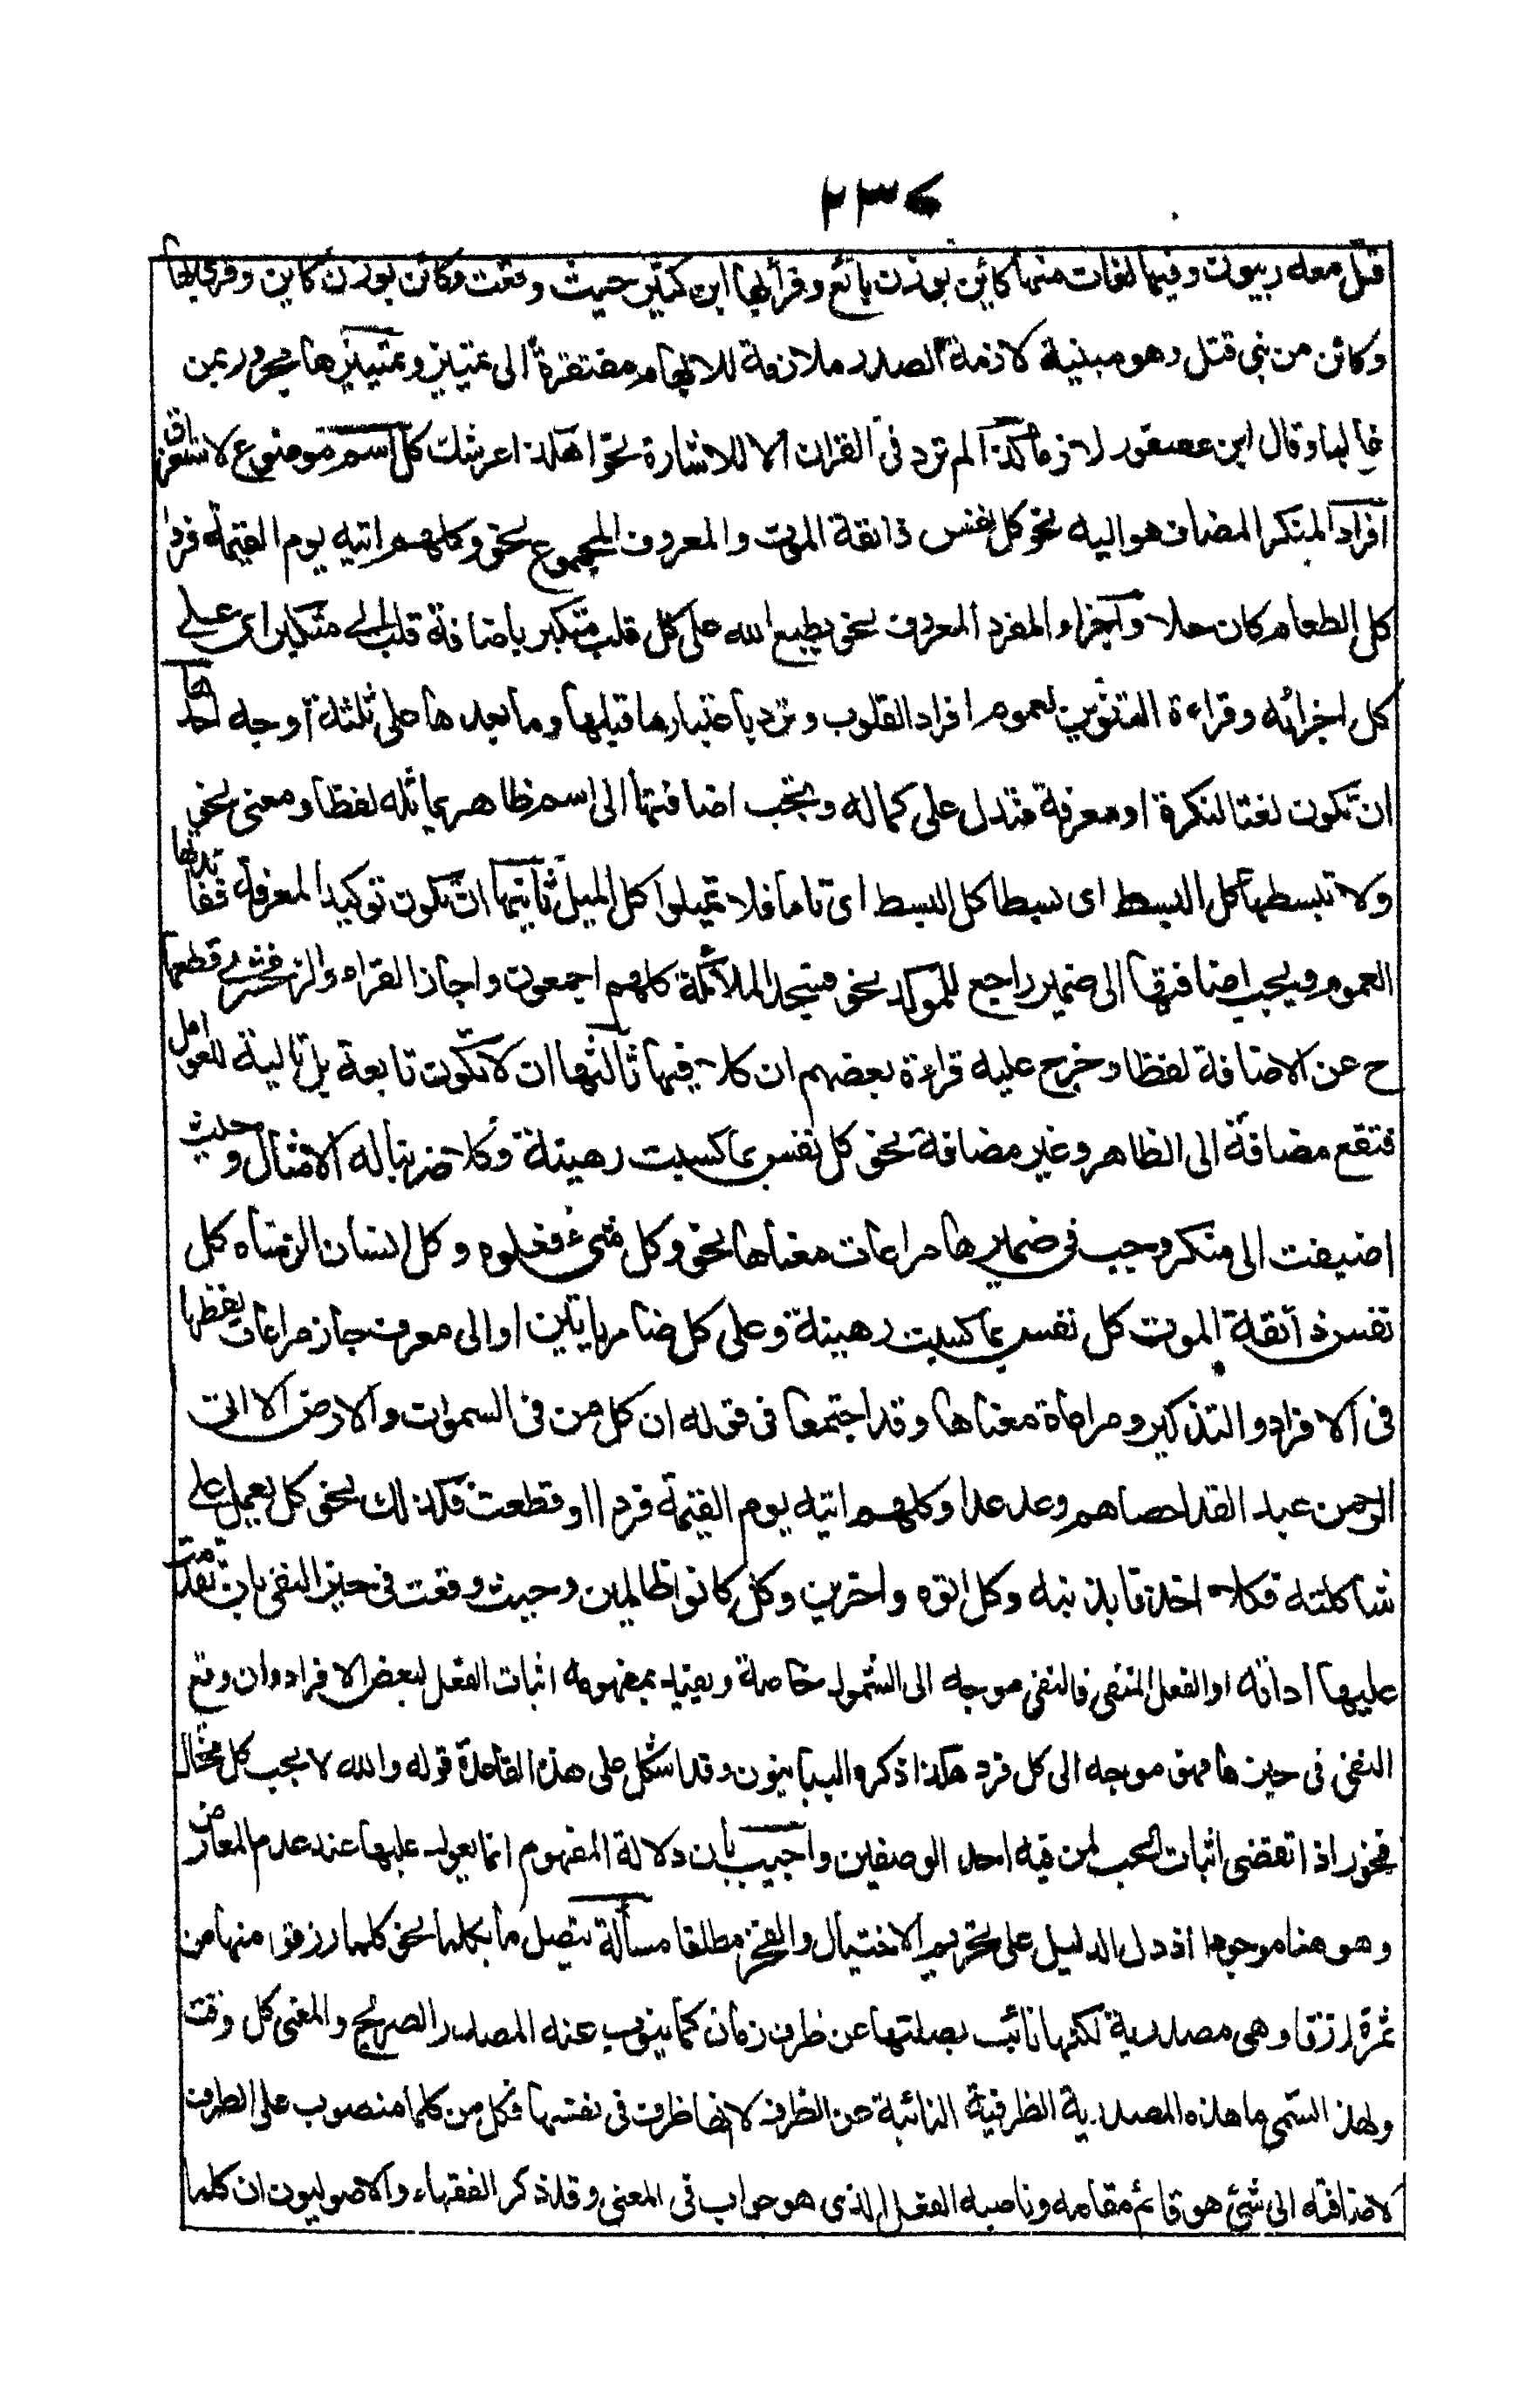 ٢٣٠
قتل معه ربيون وفيها لغات منها كائين بوزن بائع وقرأ بها ابن كثير حيث وقعت وكائن بوزن كاين وقرئ بها
وكائن من نبي قتل وهو مبنية لازمة الصدر ملازمة للابهام مفتقرة الى تمييز وتمييزها مجرور بمن
غالبا وقال ابن عصفور لازما كذا لم ترد في القران الا للاشارة نحو اهكذا عرشك كل اسم موضوع لاستغراق
افراد المنكر المضاف هو اليه نحو كل نفس ذائقة الموت والمعروف المجموع نحو وكلهم اتيه يوم القيمة فردا
كل الطعام كان حلا واجزاء المفرد المعروف نحو يطبع الله على كل قلب متكبر باضافة قلب الى متكبر اى على
كل اجزائه وقراءة التنوين لعموم افراد القلوب وترد باعتبار ما قبلها وما بعدها على ثلثة اوجه احدها
ان تكون نعتا لنكرة او معرفة فتدل على كماله وتجب اضافتها الى اسم ظاهر يماثله لفظا ومعنى نحو
ولا تبسطها كل البسط اى بسطا كل البسط اى تاما فلا تميلوا كل الميل ثانيها ان تكون توكيدا لمعرفة ففائدتها
العموم ويجب اضافتها الى ضمير راجع للمؤكد نحو فسجد الملائكة كلهم اجمعون واجاز الفراء والزمخشرى قطعها
ح عن الاضافة لفظا وخرج عليه قراءة بعضهم ان كلا فيها ثالثها ان لا تكون تابعة بل تالية للعوامل
فتقع مضافة الى الظاهر وغير مضافة نحو كل نفس بما كسبت رهينة وكلا ضربنا له الامثال وحيث
اضيفت الى منكر وجب في ضميرها مراعات معناها نحو وكل شئ فعلوه وكل انسان الزمناه كل
نفس ذائقة الموت كل نفس بما كسبت رهينة وعلى كل ضامر ياتين او الى معرف جاز مراعات لفظها
في الافراد والتذكير ومراعاة معناها وقد اجتمعا في قوله ان كل من في السموات والارض الا اتى
الرحمن عبد القد احصاهم وعد عدا وكلهم اتيه يوم القيمة فردا او قطعت فكذلك نحو كل يعمل على
شاكلته فكلا اخذنا بذنبه وكل اتوه داخرين وكل كانوا ظالمين وحيث وقعت في حيز النفى بان تقدمت
عليها اداته او الفعل المنفى فالنفى موجه الى الشمول خاصة ويفيد بمفهومه اثبات الفعل لبعض الافراد وان وقع
النفى في حيزها فهو موجه الى كل فرد هكذا ذكره البيانيون وقد اشكل على هذه القاعدة قوله والله لا يحب كل مختال
فخور اذا تقضى اثبات الحب لمن فيه احد الوصفين واجيب بان دلالة المفهوم انما يعول عليها عند عدم المعارض
وهو هنا موجود اذ دل الدليل على تحريم الاختيال والفخر مطلقا مسألة تتصل ما بكلها نحو كلما رزقوا منها من
ثمرة رزقا وهى مصدرية لكنها نائب بصلتها عن ظرف زمان كما ينوب عنه المصدر الصريح والمعنى كل وقت
ولهذا تسمى ما هذه المصدرية الظرفية النائبة عن الظرف لا انها ظرف في نفسها فكل من كلما منصوب على الظرف
لاضافته الى شئ هو قائم مقامه وناصبه الفعل الذى هو جواب في المعنى وقد ذكر الفقهاء والاصوليون ان كلما